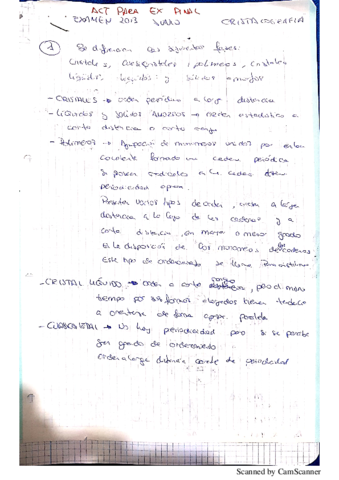 ACT PARA EX FINAL
EXAMEN 2013 JUNIO CRISTALOGRAFIA
1 Se diferencian las siguientes fases:
Cristales, Cuasicristales, polimeros, cristales
líquidos, líquidos y sólidos amorfos
- CRISTALES → orden periódico a larga distancia
- LÍQUIDOS y SÓLIDOS AMORFOS → orden estadístico a
corta distancia o corto rango
- Polímeros → Agrupación de monomeros unidos por enlace
covalente formando una cadena periódica
Si poseen radicales a la cadena
periodicidad aprox.
Presentan varios tipos de orden, a larga
distancia a lo largo de las cadenas y a
corta distancia, en mayor o menor grado
en la disposición de los monomeros de cadenas
Este tipo de ordenamiento se llama
- CRISTAL LÍQUIDO → orden a corto rango, pero al mismo
tiempo por sus formas alargadas tienen tendencia
a orientarse de forma aprox. paralela
- CUASICRISTAL → No hay periodicidad pero si se percibe
gran grado de ordenamiento
orden a larga distancia carente de periodicidad
Scanned by CamScanner